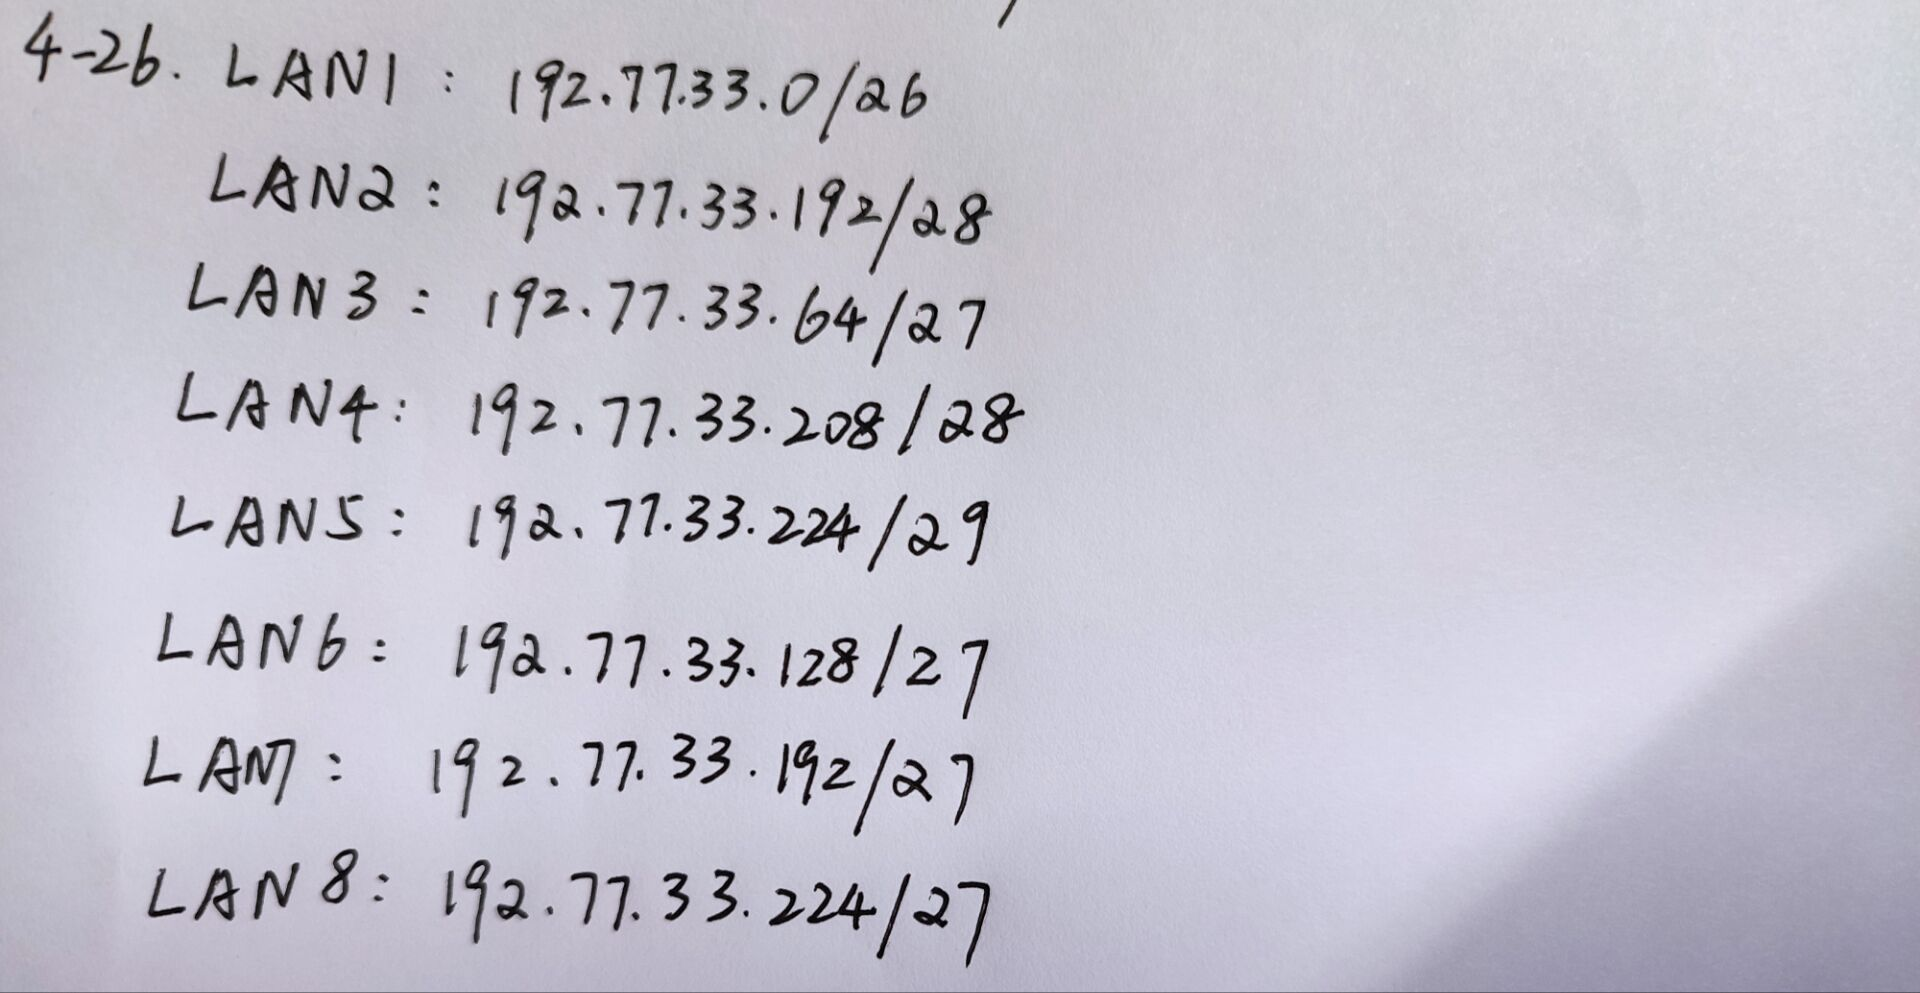 4-26. LAN1: 192.77.33.0/26
LAN2: 192.77.33.192/28
LAN3: 192.77.33.64/27
LAN4: 192.77.33.208/28
LAN5: 192.77.33.224/29
LAN6: 192.77.33.128/27
LAN7: 192.77.33.192/27
LAN8: 192.77.33.224/27